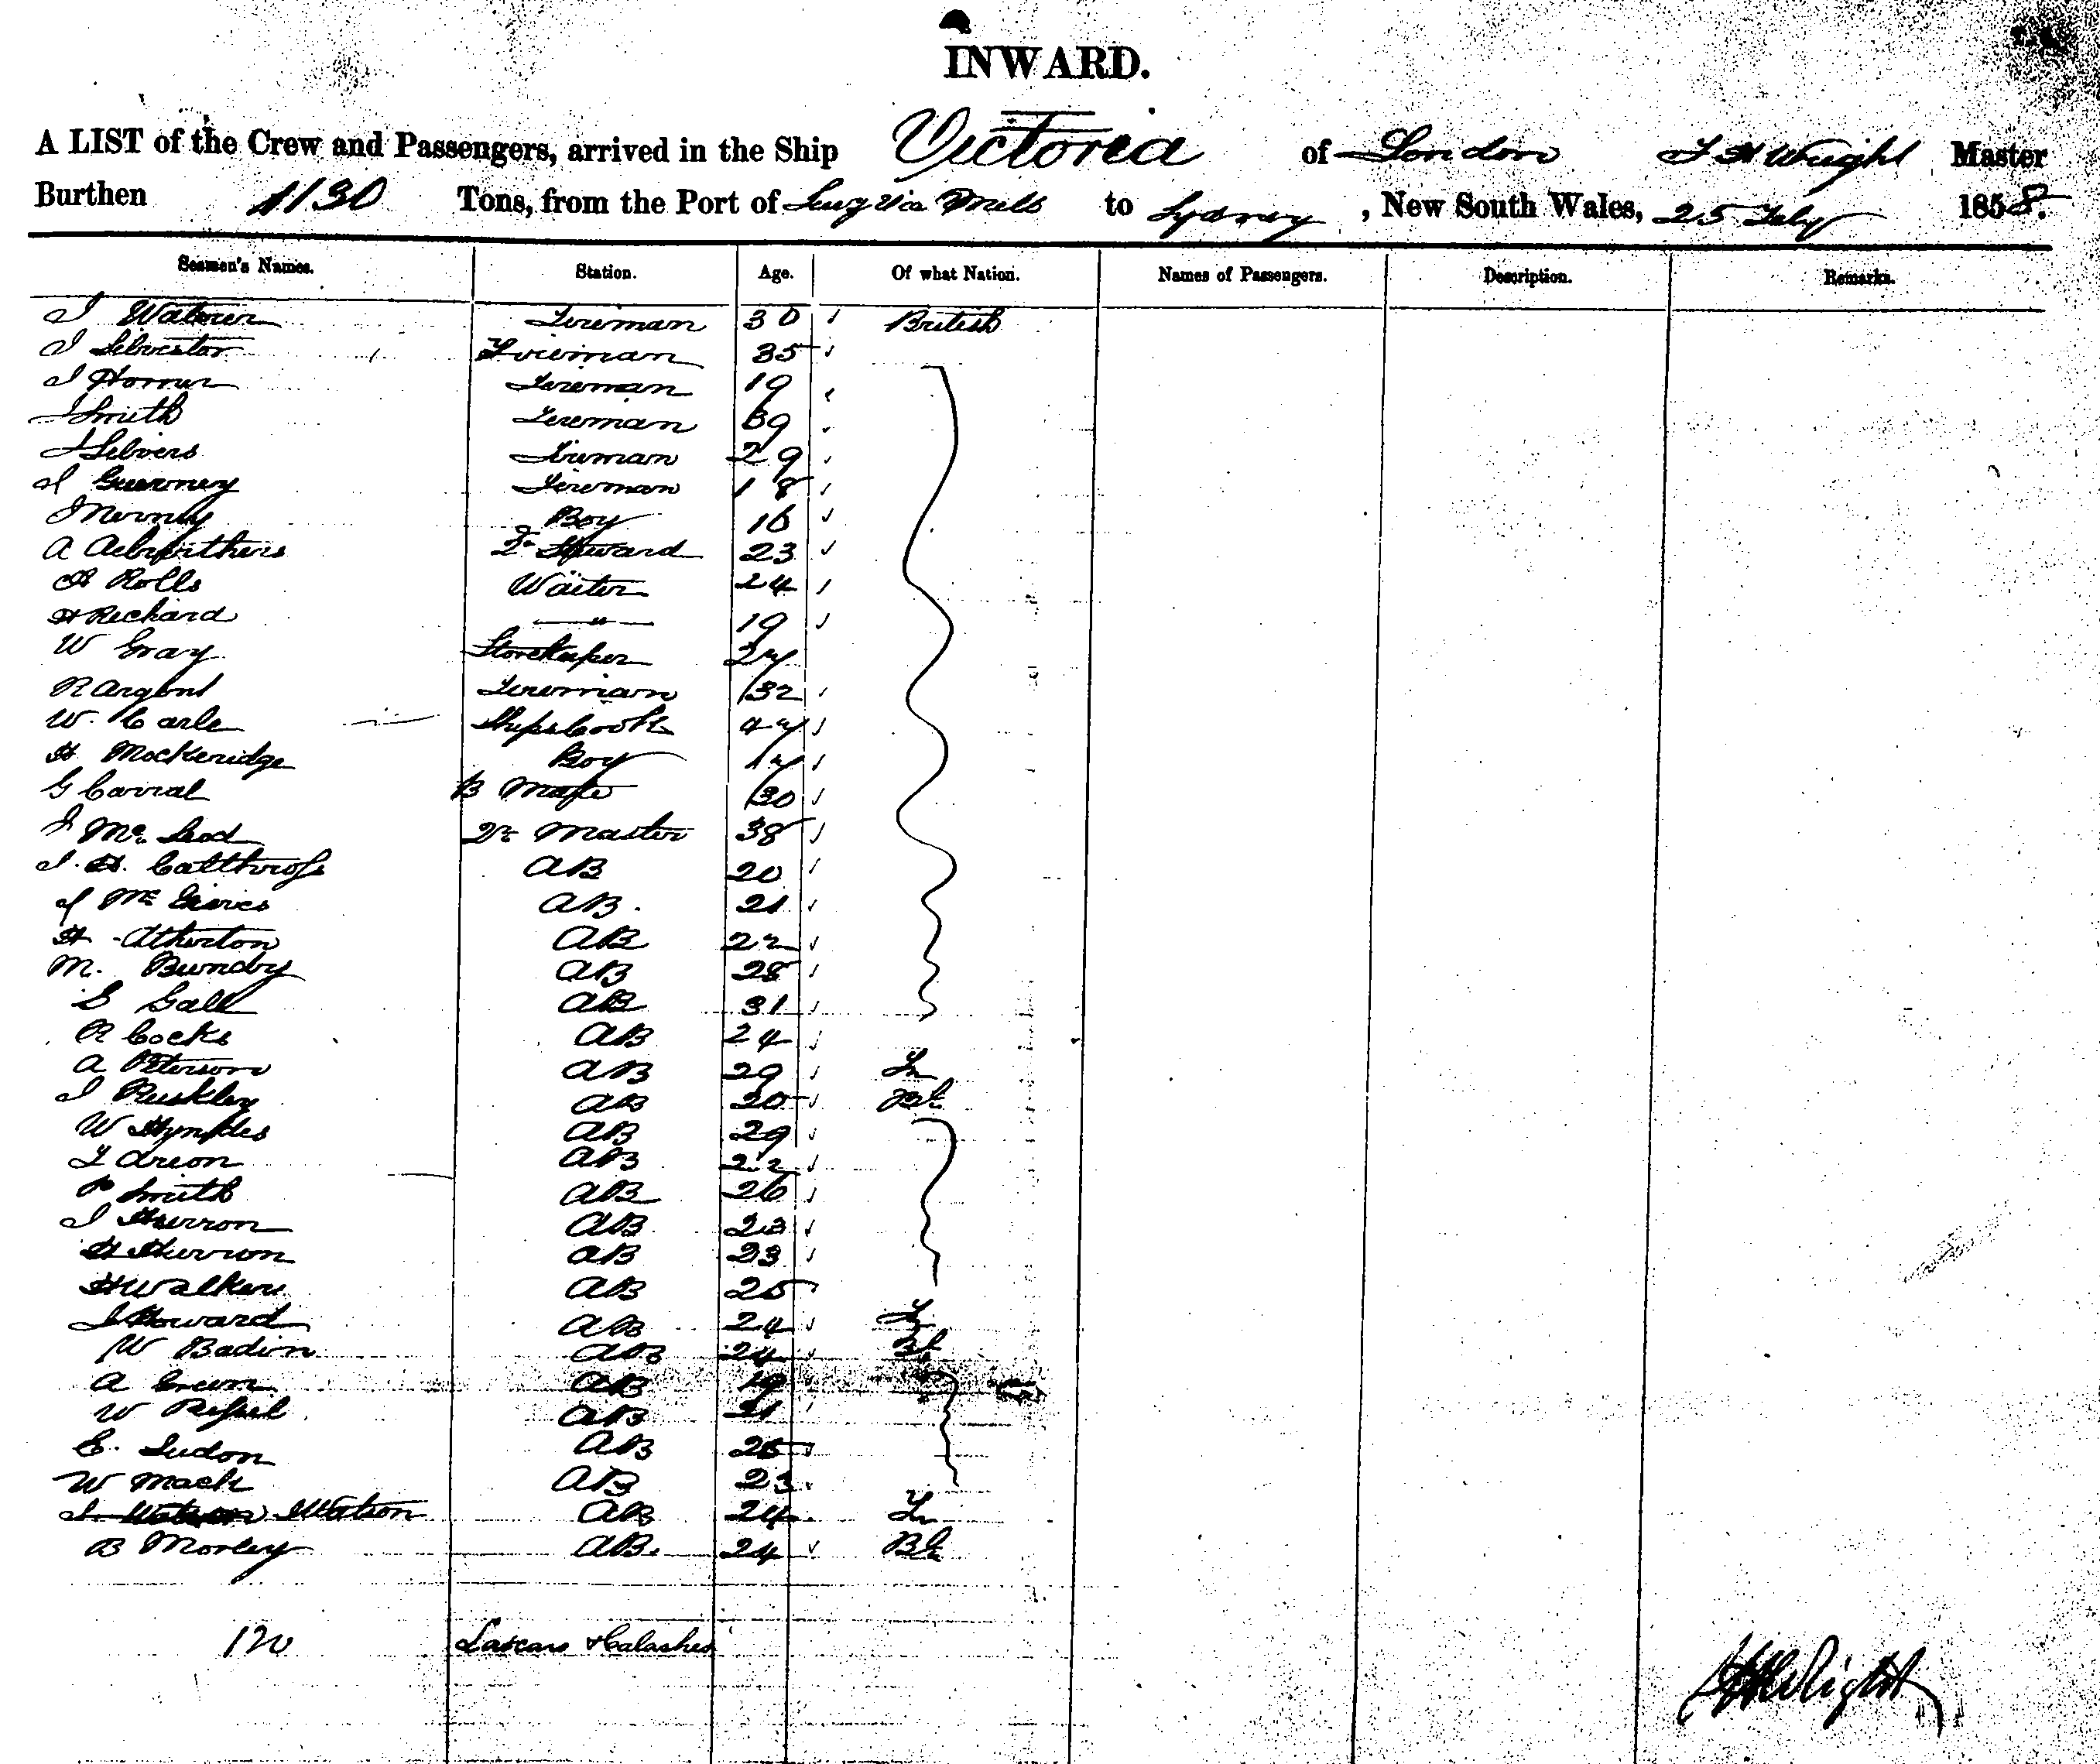 INWARD.
A LIST of the Crew and Passengers, arrived in the Ship Victoria of London Wright Master
Burthen 1130 Tons, from the Port of Via to Sydney, New South Wales, 25 July 1858.
Seamen's Names. Station. Age. Of what Nation. Names of Passengers. Description. Remarks.
Fireman 30 British
J Silvester Fireman 35
J Horner Fireman 19
J Smith Fireman 39
Silvers Fireman 29
J Guerney Fireman 18
Boy 16
A Steward 23
H Rolls Waiter 24
H Richard " 19
W Gray Storekeeper 27
R Argent Fireman 32
W. Carle Ships Cook 47
H Mockeridge Boy 17
G Carral B Mate 30
J Mc Leod Qr Master 38
J. H. Calthrop AB 20
J Mc AB. 21
H Atherton AB 22
M. Bundy AB 28
S Gall AB 31
R Cocks AB 24
A Peterson AB 29
J AB 25 Bt
W AB 29
AB 22
P Smith AB 26
J Herron AB 23
H Herron AB 23
H Walker AB 25
J Howard AB 24
W Badin AB 24 Bt
A Green AB 19
W AB 21
E. Ludon AB 25
W Mack AB 23
J Watson AB 24
B Morley AB. 24 Bt
120 Lascars & Calashes
Wright